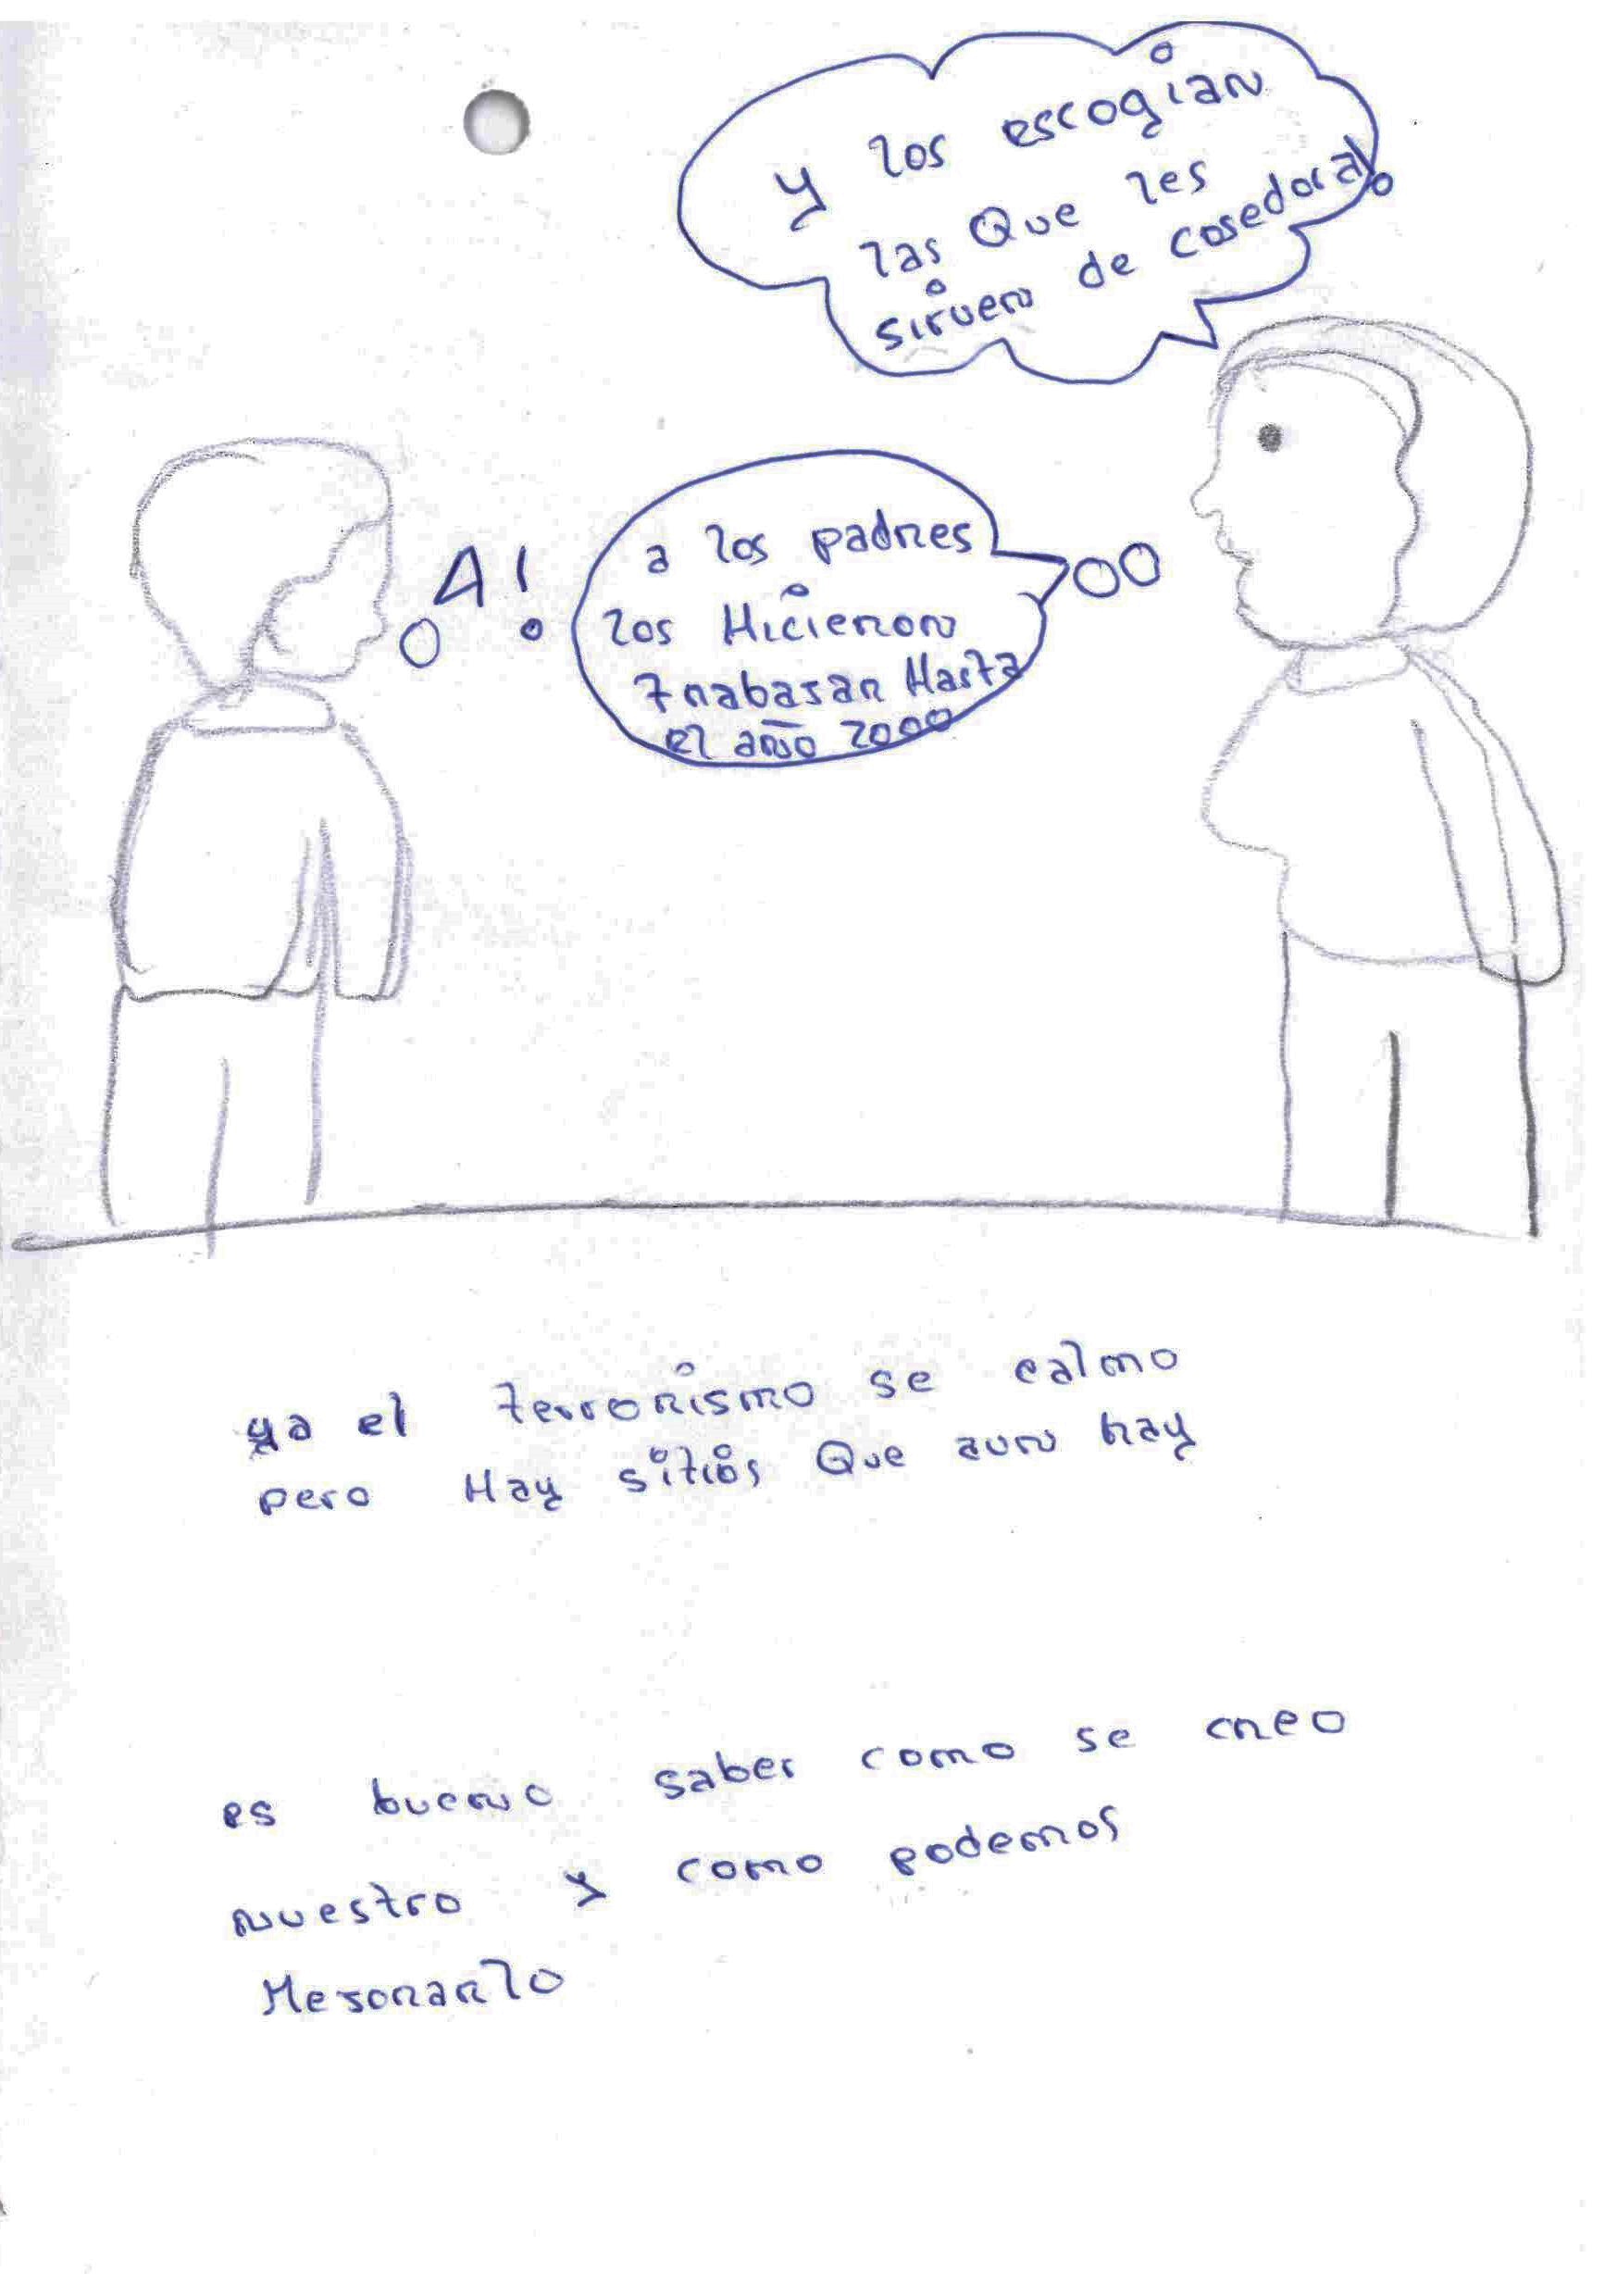 y los escogian
las Que les
sirven de cosedora
A!
a los padres
los Hicieron
trabajar Hasta
el año 2000
ya el terrorismo se calmo
pero Hay sitios Que aun hay
es bueno saber como se creo
nuestro y como podemos
Mejorarlo